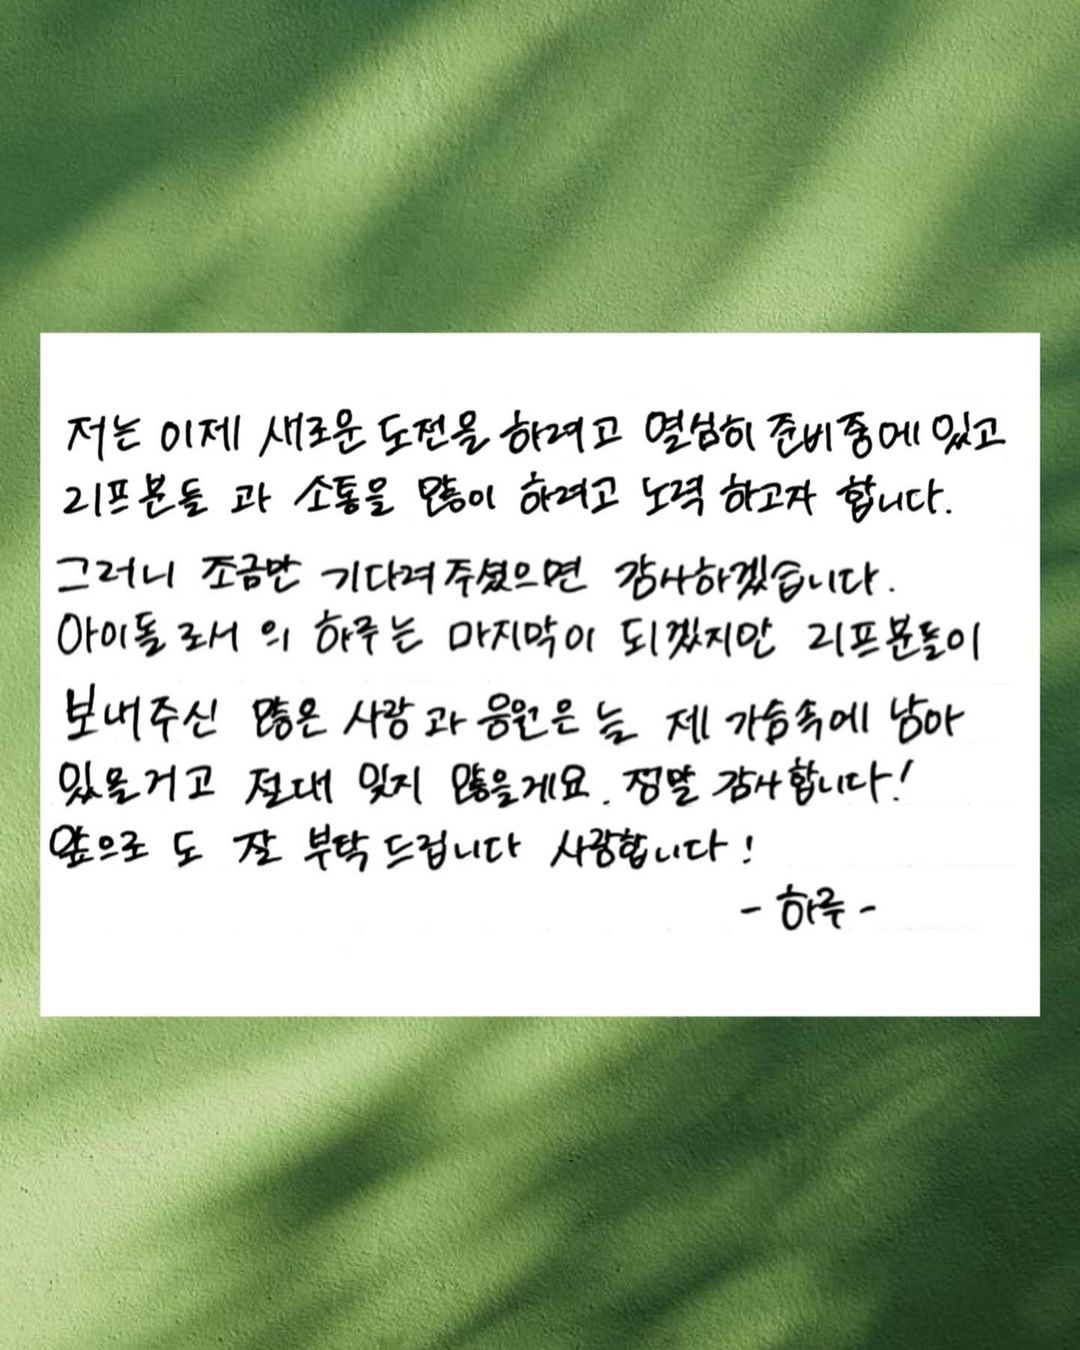 저는 이제 새로운 도전을 하려고 열심히 준비중에 있고
리프분들 과 소통을 많이 하려고 노력 하고자 합니다.
그러니 조금만 기다려주셨으면 감사하겠습니다.
아이돌로서 의 하루는 마지막이 되겠지만 리프분들이
보내주신 많은 사랑과 응원은 늘 제 가슴속에 남아
있을거고 절대 잊지 않을게요. 정말 감사합니다!
앞으로 도 잘 부탁드립니다 사랑합니다!
- 하루 -